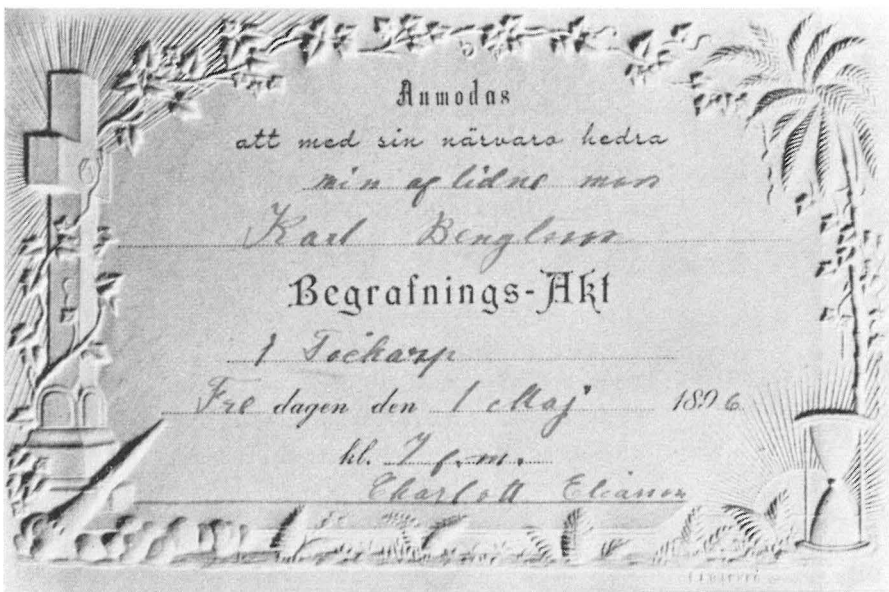 Anmodas
att med sin närvaro hedra
min aflidne man
Karl Bengtsson
Begrafnings-Akt
i Tockarp
Fre dagen den 1 Maj 1896
kl. 7 f.m.
Charlott Eliasson